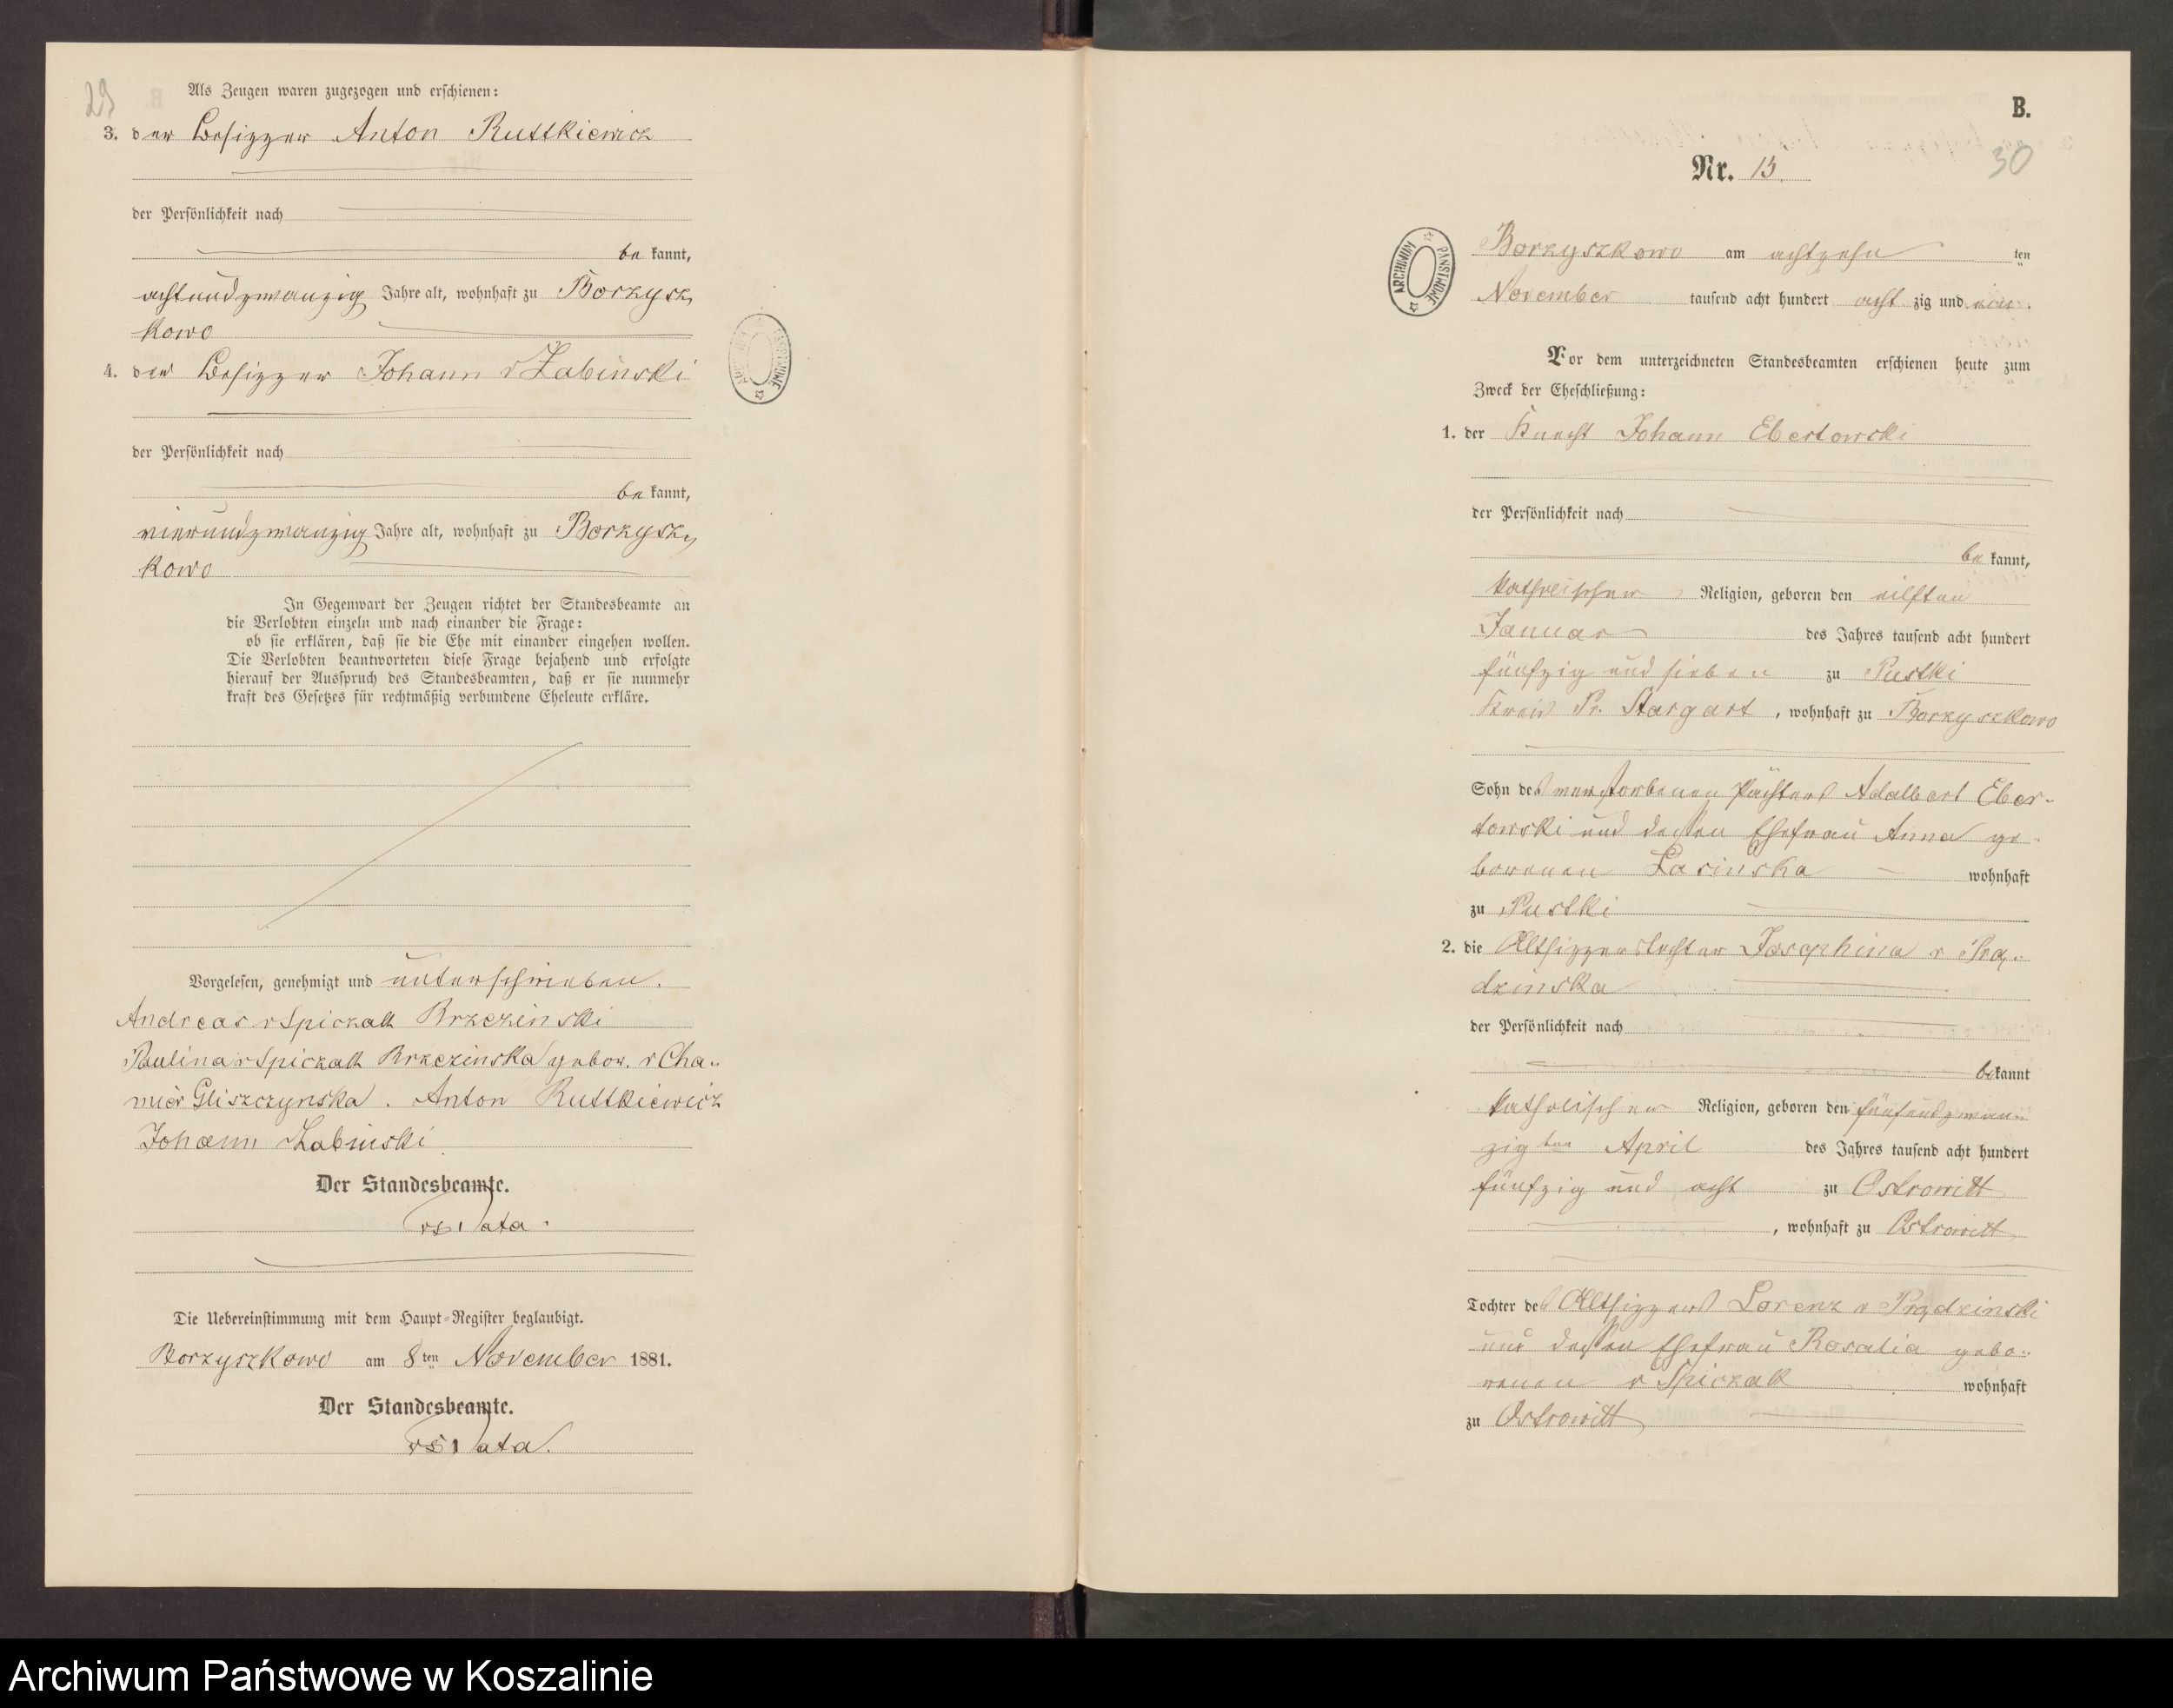 29
Als Zeugen waren zugezogen und erschienen:
3. der Besitzer Anton Ruttkiewicz
der Persönlichkeit nach
be kannt,
achtundzwanzig Jahre alt, wohnhaft zu Borzysz
kowo
4. der Besitzer Johann v Zabinski
der Persönlichkeit nach
be kannt,
vierundzwanzig Jahre alt, wohnhaft zu Borzysz
kowo
In Gegenwart der Zeugen richtet der Standesbeamte an
die Verlobten einzeln und nach einander die Frage:
ob sie erklären, daß sie die Ehe mit einander eingehen wollen.
Die Verlobten beantworteten diese Frage bejahend und erfolgte
hierauf der Ausspruch des Standesbeamten, daß er sie nunmehr
kraft des Gesetzes für rechtmäßig verbundene Eheleute erkläre.
Vorgelesen, genehmigt und unterschrieben.
Andreas v Spiczak Brzezinski
Paulina v Spiczak Brzezinska gebor. v Cha-
mier Gliszczynska. Anton Ruttkiewicz
Johann Zabinski
Der Standesbeamte.
Die Uebereinstimmung mit dem Haupt-Register beglaubigt.
Borzyszkowo am 8ten November 1881.
Der Standesbeamte.
ARCHIWUM PAŃSTWOWE
B.
30
Nr. 15.
ARCHIWUM PAŃSTWOWE
Borzyszkowo am achtzehn ten
November tausend acht hundert acht zig und ein.
Vor dem unterzeichneten Standesbeamten erschienen heute zum
Zweck der Eheschließung:
1. der Knecht Johann Ebertowski
der Persönlichkeit nach
be kannt,
katholischer Religion, geboren den eilften
Januar des Jahres tausend acht hundert
fünfzig und sieben zu Pustki
Kreis Pr. Stargart, wohnhaft zu Borzyszkowo
Sohn des verstorbenen Pächters Adalbert Eber-
towski und dessen Ehefrau Anna ge-
borenen Lasinska wohnhaft
zu Pustki
2. die Altsitzerstochter Josephina v Prą-
dzinska
der Persönlichkeit nach
bekannt
katholischer Religion, geboren den fünfundzwan-
zigten April des Jahres tausend acht hundert
fünfzig und acht zu Ostrowitt
, wohnhaft zu Ostrowitt
Tochter des Altsitzers Lorenz v Prądzinski
und dessen Ehefrau Rosalia gebo-
renen v Spiczak wohnhaft
zu Ostrowitt
Archiwum Państwowe w Koszalinie